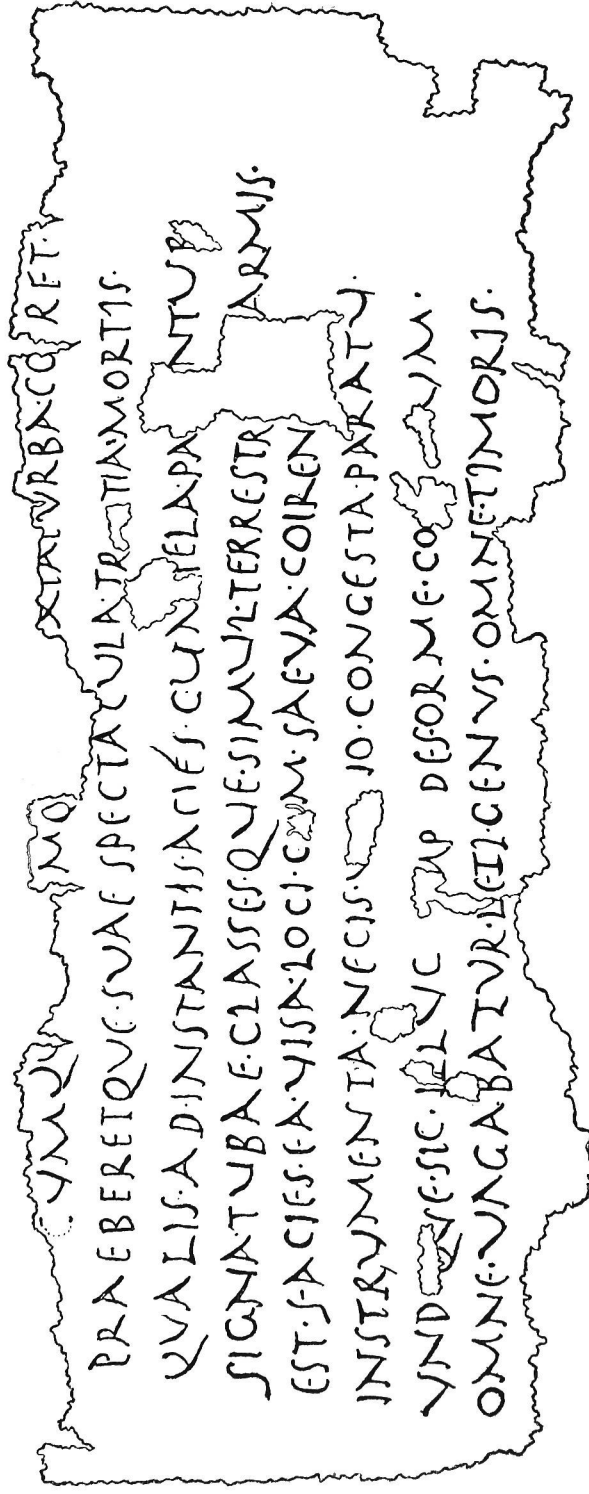 VMQV MO XIATVRBA·CO RET·
PRAEBERETQVE·SVAE SPECTACVLA·TR TIA·MORTIS·
QVALIS·AD·INSTANTIS·ACIÉS·CVM TELA·PA NTVR
SIGNA·TVBAE·CLASSESQVE·SIMVL·TERRESTR ARMIS·
EST·FACIES·EA·VISA·LOCI·C M·SAEVA·COIREN
INSTRVMENTA·NECIS·V IO·CONGESTA·PARATV·
VND QVE·SIC·ILLVC MP DEFORME·CO VM·
OMNE·VAGABATVR·LETI·GENVS·OMNE·TIMORIS·